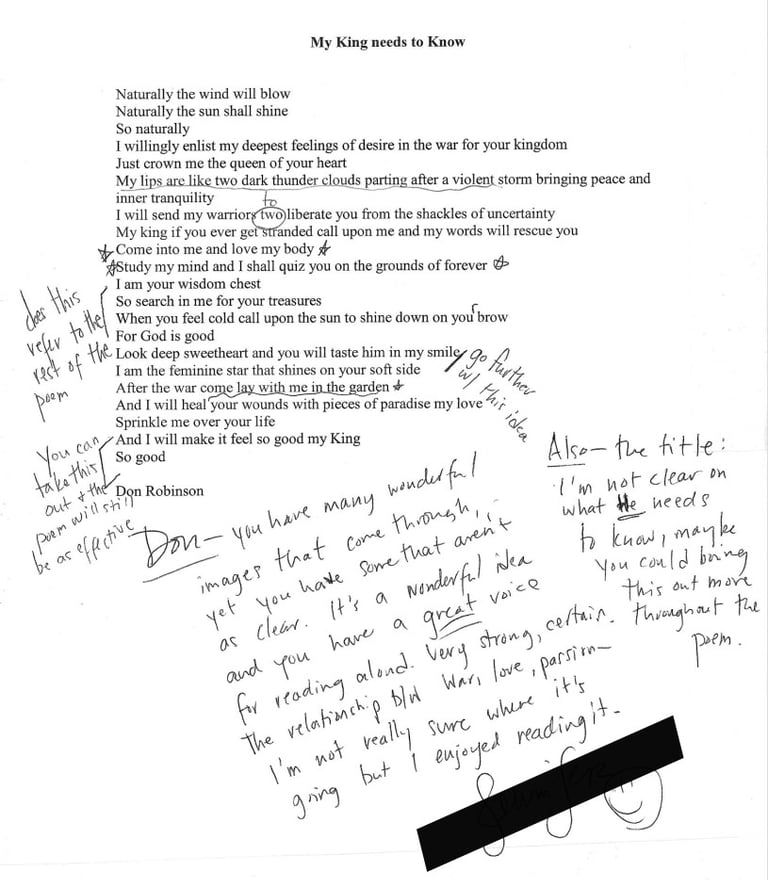 My King needs to Know
Naturally the wind will blow
Naturally the sun shall shine
So naturally
I willingly enlist my deepest feelings of desire in the war for your kingdom
Just crown me the queen of your heart
My lips are like two dark thunder clouds parting after a violent storm bringing peace and
inner tranquility
to
I will send my warriors two liberate you from the shackles of uncertainty
My king if you ever get stranded call upon me and my words will rescue you
Come into me and love my body
Study my mind and I shall quiz you on the grounds of forever
I am your wisdom chest
So search in me for your treasures
r
When you feel cold call upon the sun to shine down on you brow
For God is good
Look deep sweetheart and you will taste him in my smile
I am the feminine star that shines on your soft side
After the war come lay with me in the garden
And I will heal your wounds with pieces of paradise my love
Sprinkle me over your life
And I will make it feel so good my King
So good
Don Robinson
does this
refer to the
rest of the
poem
go further
w/ this idea
You can
take this
out & the
poem will still
be as effective
Don- you have many wonderful
images that come through,
yet you have some that aren't
as clear. It's a wonderful idea
and you have a great voice
for reading aloud. Very strong, certain.
The relationship b/w war, love, passion-
I'm not really sure where it's
going but I enjoyed reading it.
Also- the title:
I'm not clear on
what He needs
to know, maybe
you could bring
this out more
throughout the
poem.